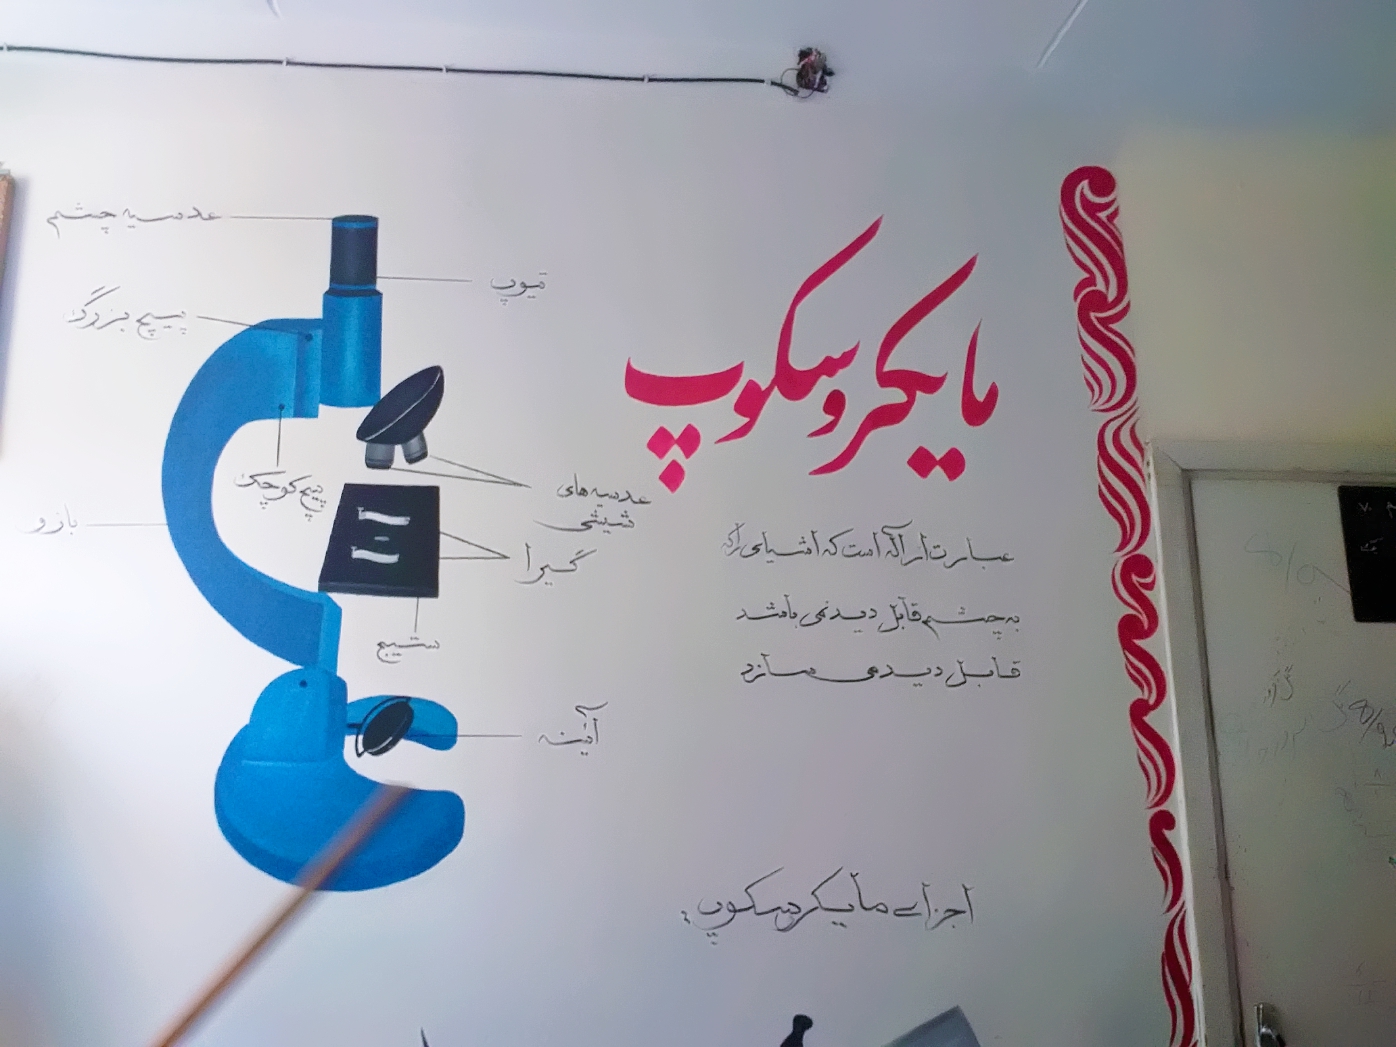 مایکروسکوپ
عبارت از آله است که اشیای را که
به چشم قابل دید نمی باشد
قابل دید می سازد
اجزاے مایکروسکوپ:
عدسیه چشم
تیوپ
پیچ بزرگ
پیچ کوچک
عدسیه های
شیشی
بازو
گیرا
ستیج
آئینه